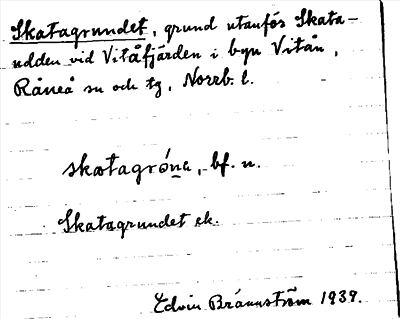 Skatagrundet, grund utanför Skata-
udden vid Vitåfjärden i byn Vitån,
Råneå sn och tg, Norrb. l.
skatagróna, bf. n.
Skatagrundet ek.
Edvin Brännström 1939.